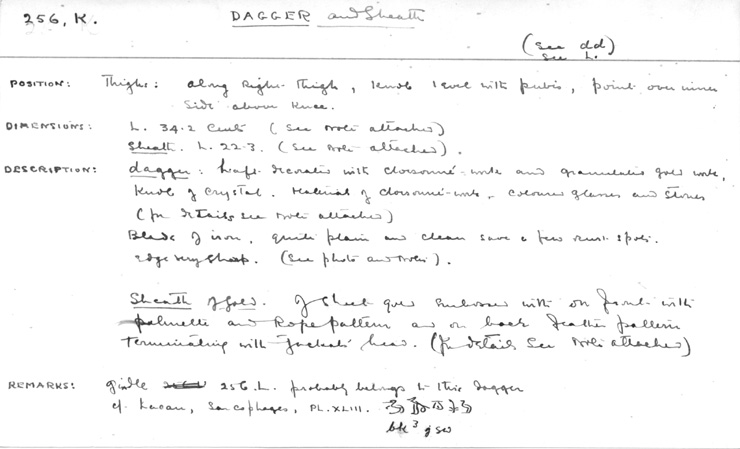 256, K. DAGGER and Sheath
(See dd)
See L.
POSITION: Thighs: along right thigh, knob level with pubis, point over inner
side above knee.
DIMENSIONS: L. 34.2 Cents (See note attached)
Sheath. L. 22.3. (See note attached).
DESCRIPTION: dagger: haft decorated with cloisonné-work and granulated gold work,
Knob of crystal. Material of cloisonné-work, coloured glasses and stones
(for details see note attached)
Blade of iron, quite plain and clean save a few rust spots.
edge very sharp. (See photo and note).
Sheath of gold. Of sheet gold embossed with on front with
palmette and Rope pattern and on back feather pattern
terminating with Jackals' head. (for details See note attached)
REMARKS: girdle 256.L. probably belongs to this dagger
cf. Lacau, Sarcophages, PL.XLIII.